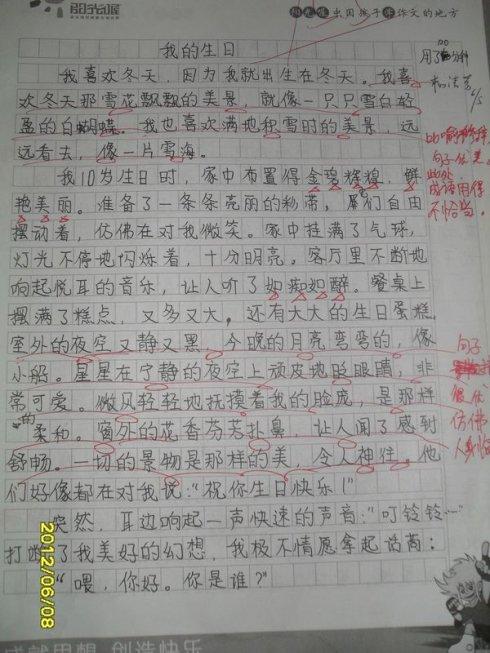 阳光喔
阳光喔 出国孩子 作文的地方
我的生日
用了 分钟
我喜欢冬天，因为我就出生在冬天。我喜
欢冬天那雪花飘飘的美景，就像一只只雪白轻
盈的白蝴蝶。我也喜欢满地积雪时的美景，远
远看去，像一片雪海。
比喻
句子优美
此处
成语用得
不恰当。
我10岁生日时，家中布置得金碧辉煌，鲜
艳美丽。准备了一条条亮丽的彩带，它们自由
摆动着，仿佛在对我微笑。家中挂满了气球，
灯光不停地闪烁着，十分明亮。客厅里不断地
响起悦耳的音乐，让人听了如痴如醉。餐桌上
摆满了糕点，又多又大，还有大大的生日蛋糕。
室外的夜空又静又黑，今晚的月亮弯弯的，像
小船。星星在宁静的夜空上顽皮地眨眼睛，非
常可爱。微风轻轻地抚摸着我的脸庞，是那样
的柔和。窗外的花香芬芳扑鼻，让人闻了感到
舒畅。一切的景物是那样的美，令人神往。他
们好像都在对我说："祝你生日快乐！"
句子
很优
仿佛
人身临
突然，耳边响起一声快速的声音："叮铃铃…"
打断了我美好的幻想，我极不情愿拿起话筒：
"喂，你好。你是谁？"
2012/06/08
成就思想 创造快乐